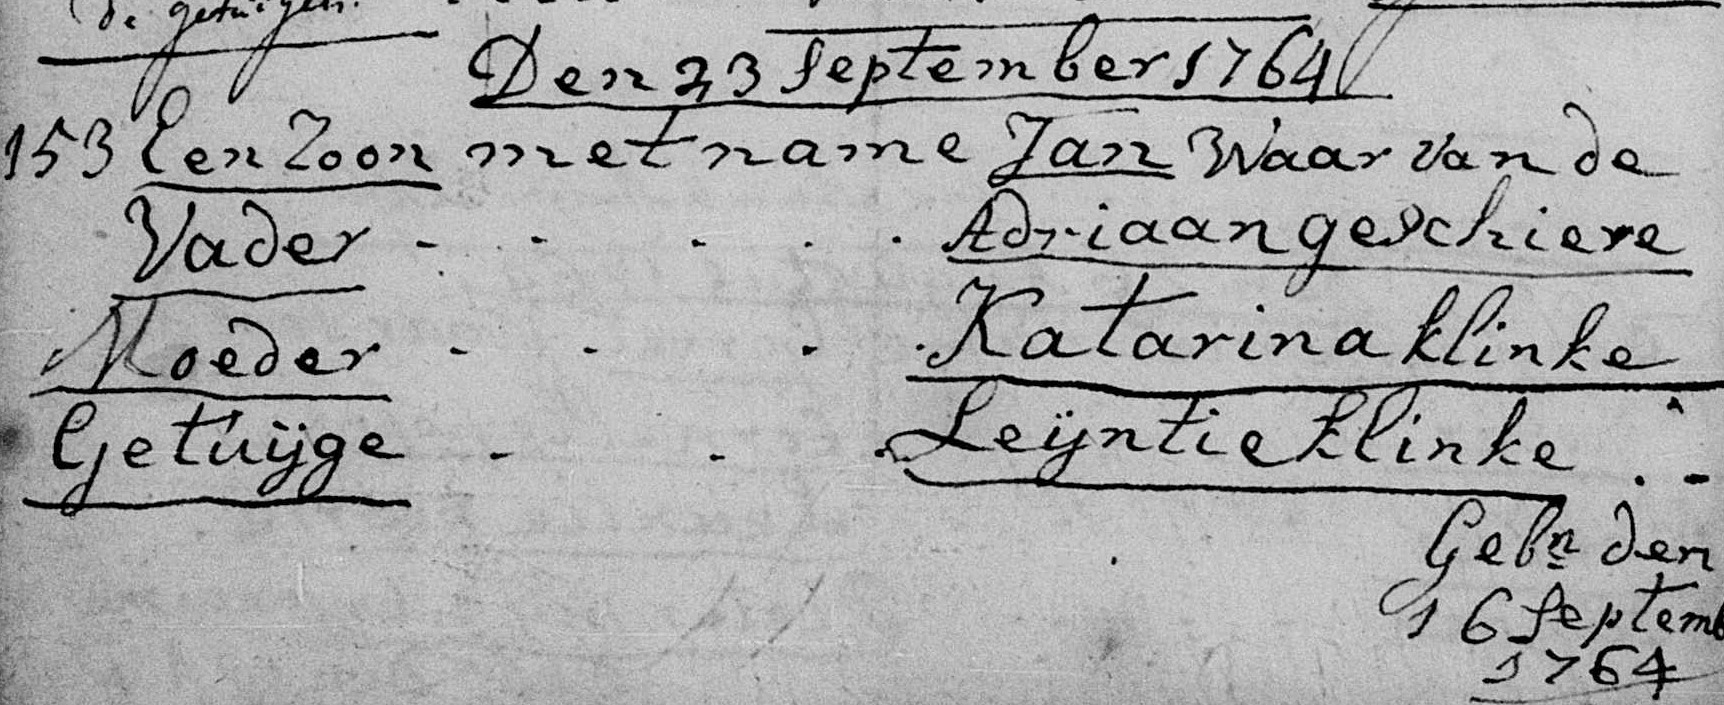 de getuijgen.
Den 23 September 1764
153 Een Zoon met name Jan Waar van de
Vader - - - - - Adriaan geschiere
Moeder - - - - Katarina klinke
Getuijge - - - Leijntie klinke . -
Gebn den
16 Septemb
1764